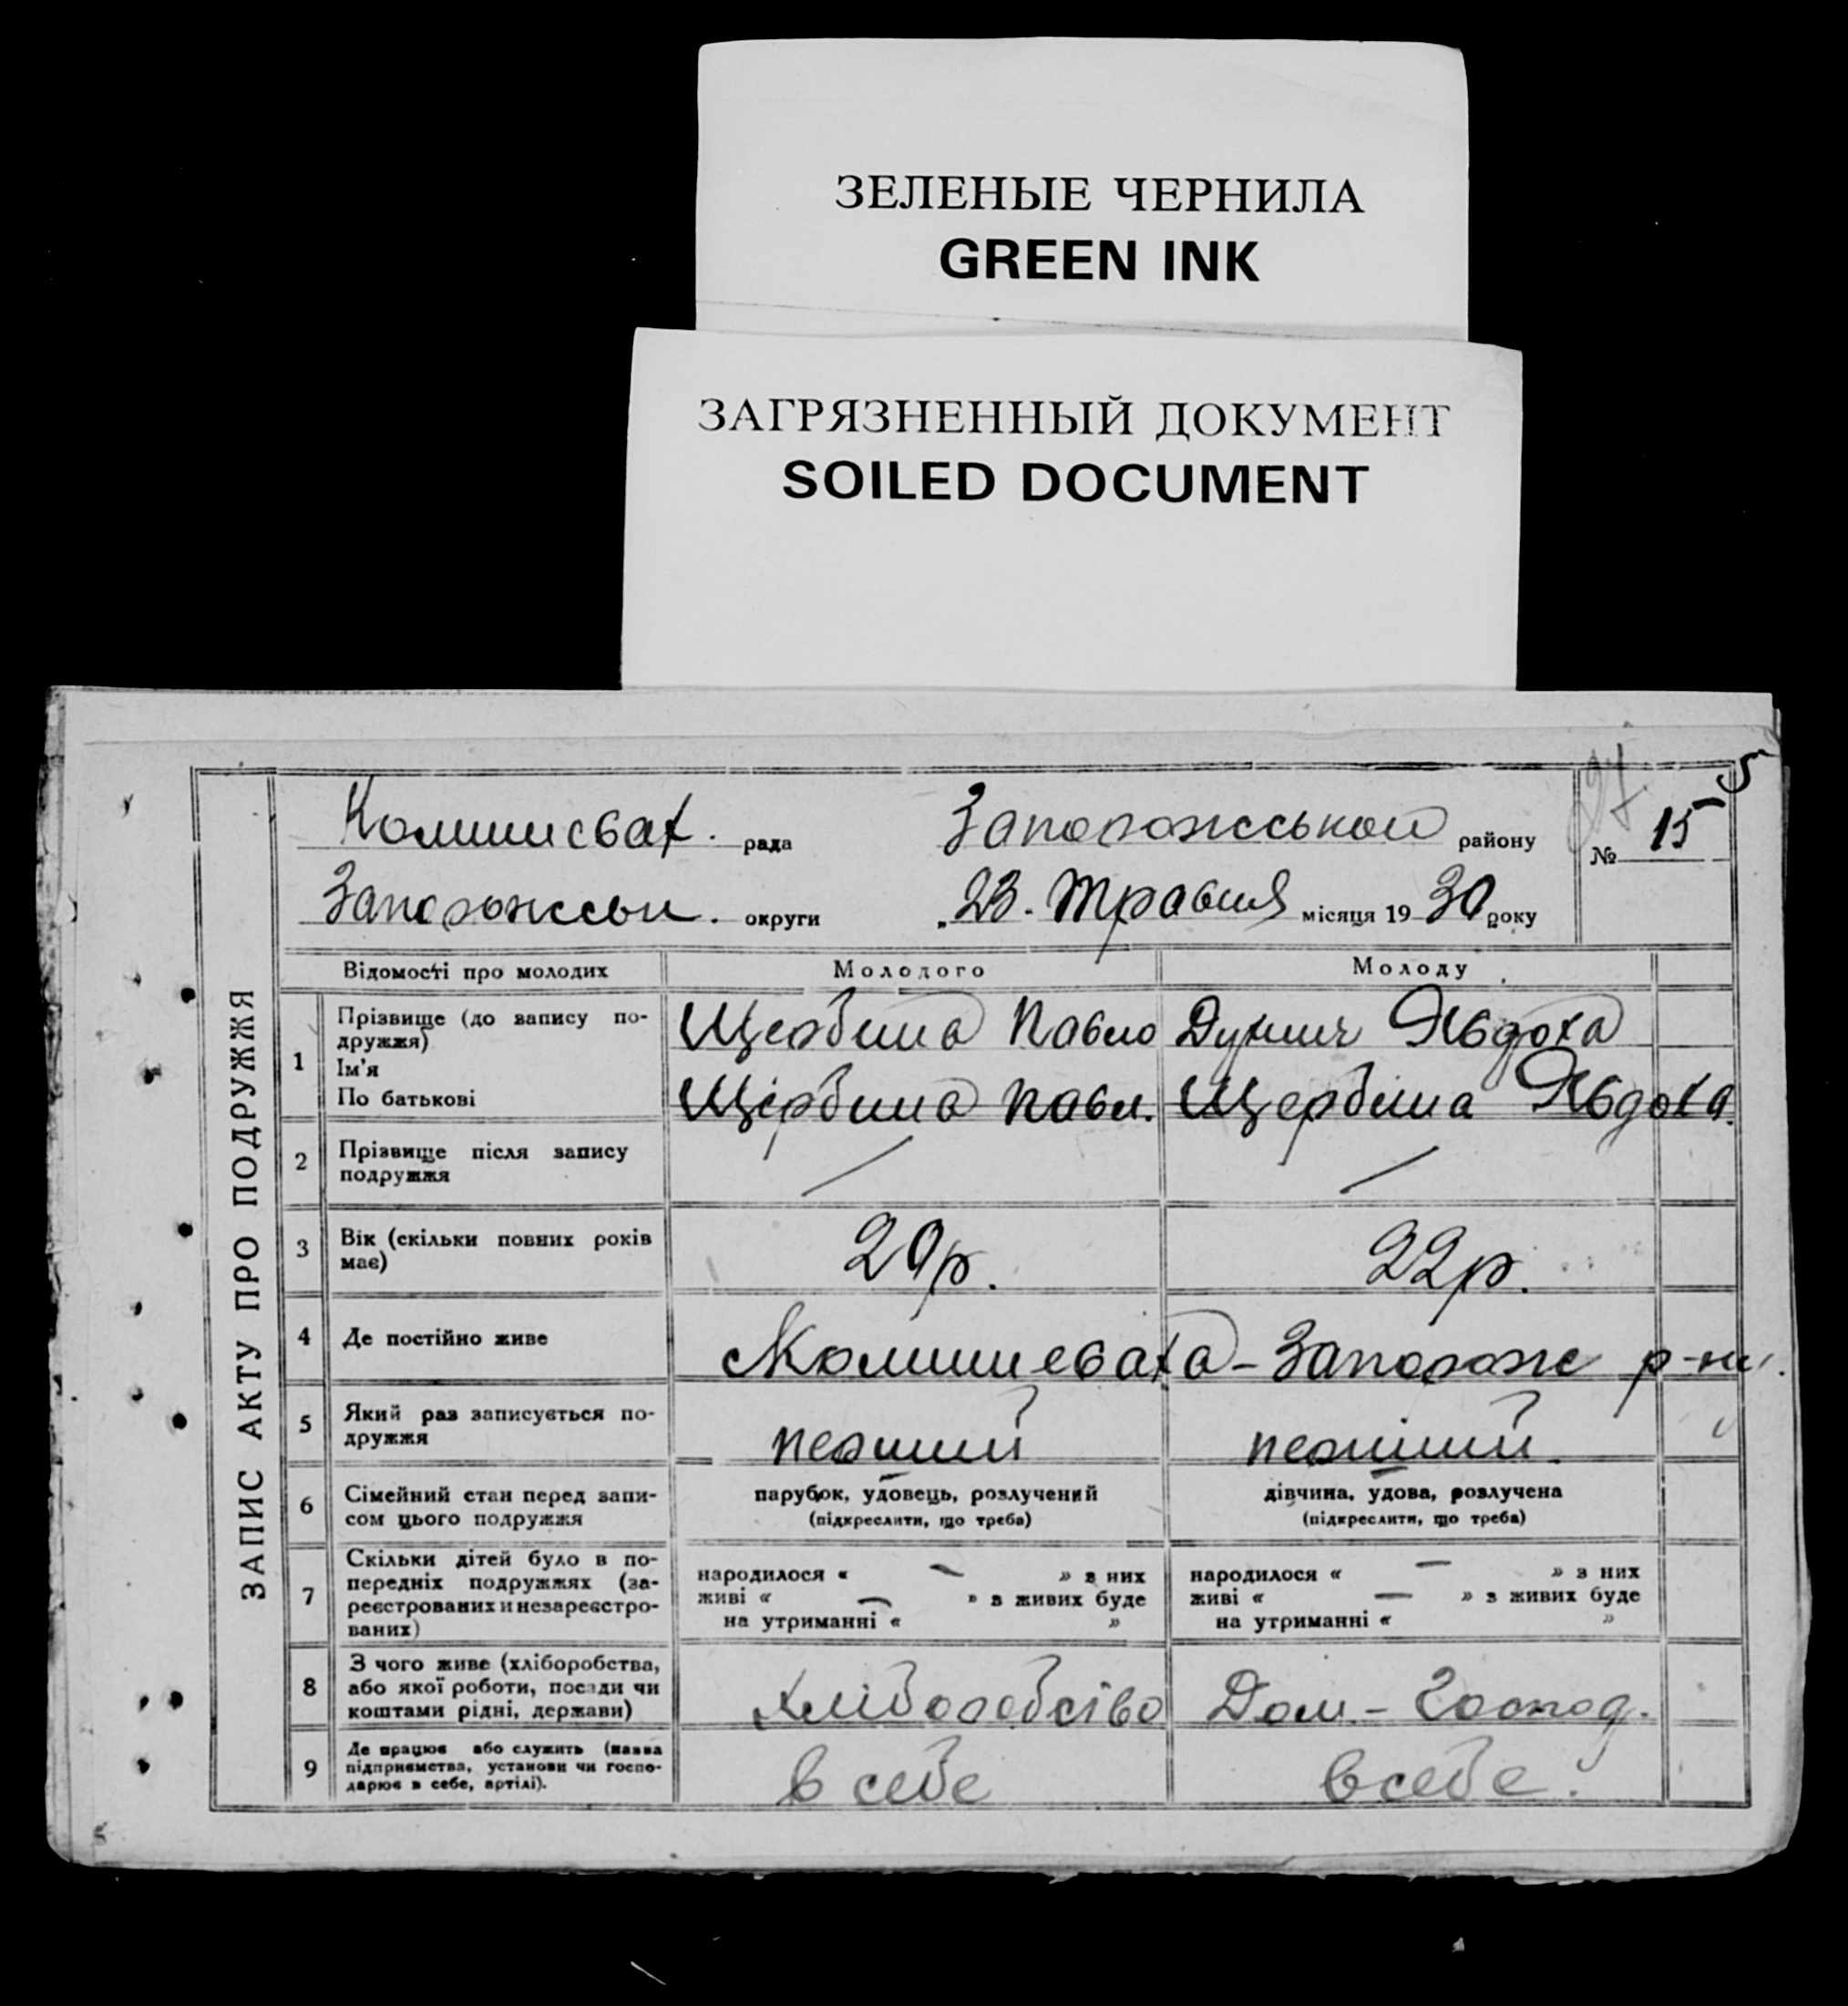 ЗЕЛЕНЫЕ ЧЕРНИЛА
GREEN INK
ЗАГРЯЗНЕННЫЙ ДОКУМЕНТ
SOILED DOCUMENT
5
Комишеват. рада Запорожської району № 15
Запорожськ. округи „23. Травня місяця 1930 року
ЗАПИС АКТУ ПРО ПОДРУЖЖЯ
Відомості про молодих Молодого Молоду
1 Прізвище (до запису подружжя) Щербина Павло Явдоха
Ім'я
По батькові Щербина Павл. Щербина Явдоха.
2 Прізвище після запису подружжя / /
3 Вік (скільки повних років має) 29р. 22р.
4 Де постійно живе Комишевата – Запорож р-ну.
5 Який раз записується подружжя перший перший
6 Сімейний стан перед записом цього подружжя парубок, удовець, розлучений дівчина, удова, розлучена
(підкреслити, що треба) (підкреслити, що треба)
7 Скільки дітей було в попередніх подружжях (зареєстрованих и незареєстрованих) народилося « — » з них народилося « — » з них
живі « — » з живих буде живі « — » з живих буде
на утриманні « » на утриманні « »
8 З чого живе (хліборобства, або якої роботи, посади чи коштами рідні, держави) Хліборобство Дом. – Господ.
9 Де працює або служить (назва підприємства, установи чи господарює в себе, артілі). в себе в себе.